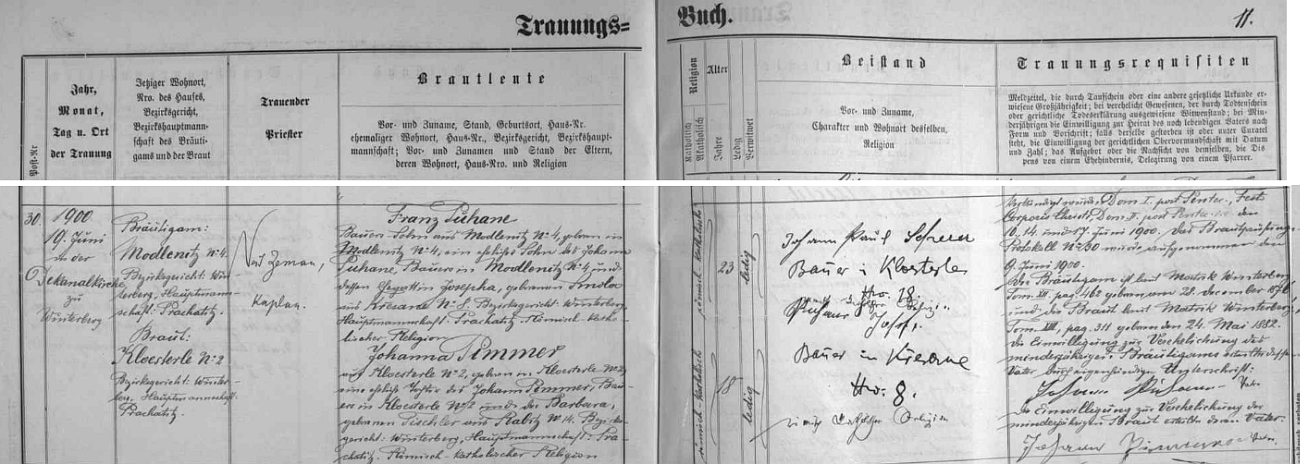 Trauungs=
Buch.
11.
Post-Nr
Jahr,
Monat,
Tag u. Ort
der Trauung
Jetziger Wohnort,
Nro. des Hauses,
Bezirksgericht,
Bezirkshauptmann-
schaft des Bräuti-
gams und der Braut
Trauender
Priester
Brautleute
Vor- und Zuname, Stand, Geburtsort, Haus-Nr.
ehemaliger Wohnort, Haus-Nr., Bezirksgericht, Bezirkshaupt-
mannschaft; Vor- und Zunamen und Stand der Eltern,
deren Wohnort, Haus-Nro. und Religion
Religion
Katholisch
Akatholisch
Alter
Jahre
Ledig
Verwitwet
Beistand
Vor- und Zuname,
Charakter und Wohnort desselben,
Religion
Trauungsrequisiten
Meldzettel, die durch Taufschein oder eine andere gesetzliche Urkunde er-
wiesene Großjährigkeit; bei verehelicht Gewesenen, der durch Todtenschein
oder gerichtliche Todeserklärung ausgewiesene Witwenstand; bei Min-
derjährigen die Einwilligung zur Heirat des noch lebendigen Vaters nach
Form und Vorschrift; falls derselbe gestorben ist oder unter Curatel
steht, die Einwilligung der gerichtlichen Obervormundschaft mit Datum
und Zahl; das Aufgebot oder die Nachsicht von demselben, die Dis
pens von einem Ehehindernis, Delegirung von einem Pfarrer.
30.
1900
19. Juni
in der
Dekanalkirche
zu
Winterberg
Bräutigam:
Modlenitz N° 4.
Bezirksgericht: Win-
terberg, Hauptmann-
schaft: Prachatitz.
Braut:
Kloesterle N° 2
Bezirksgericht: Winter-
berg, Hauptmannschaft:
Prachatitz.
Zeman,
Kaplan.
Franz Puhane
Bauer-Sohn aus Modlenitz N° 4, geboren in
Modlenitz N° 4, ein ehelicher Sohn des Johann
Puhane, Bauer in Modlenitz N° 4 und
dessen Gegattin Josepha, geborenen Smola
aus N° 8. Bezirksgericht: Winterberg,
Hauptmannschaft Prachatitz. Römisch-katho-
lischer Religion
Johanna Zimmer
aus Kloesterle N° 2, geboren in Kloesterle N° 2,
eine eheliche Tochter des Johann Zimmer, Bau-
er in Kloesterle N° 2 und der Barbara,
geborenen Tischler aus N° 14. Bezirks-
gericht: Winterberg, Hauptmannschaft: Pra-
chatitz. Römisch-katholischer Religion
römisch katholisch
23
ledig
römisch katholisch
18
ledig
Johann Paul
Bauer in Klosterle
Nro. 18.
Puhane
Josef.
Bauer in
Nro. 8.
Religion
Verkündigt wurde, Dom. I. post Pentec., Fest.
Corporis Christi, Dom. II. post Pentec. den
10. 14. und 17. Juni 1900. Das Brautprüfungs-
Protokoll N° 30 wurde aufgenommen den
9. Juni 1900.
Der Bräutigam ist laut Matrik Winterberg
Tom. pag. 462 geboren am 28. December 1876,
und die Braut laut Matrik Winterberg,
Tom. pag. 311 geboren den 24. Mai 1882.
die Einwilligung zur Verehelichung des
minderjährigen Bräutigams ertheilte dessen
Vater durch eigenhändige Unterschrift:
Johann Vater
die Einwilligung zur Verehelichung der
minderjährigen Braut ertheilte deren Vater:
Johann